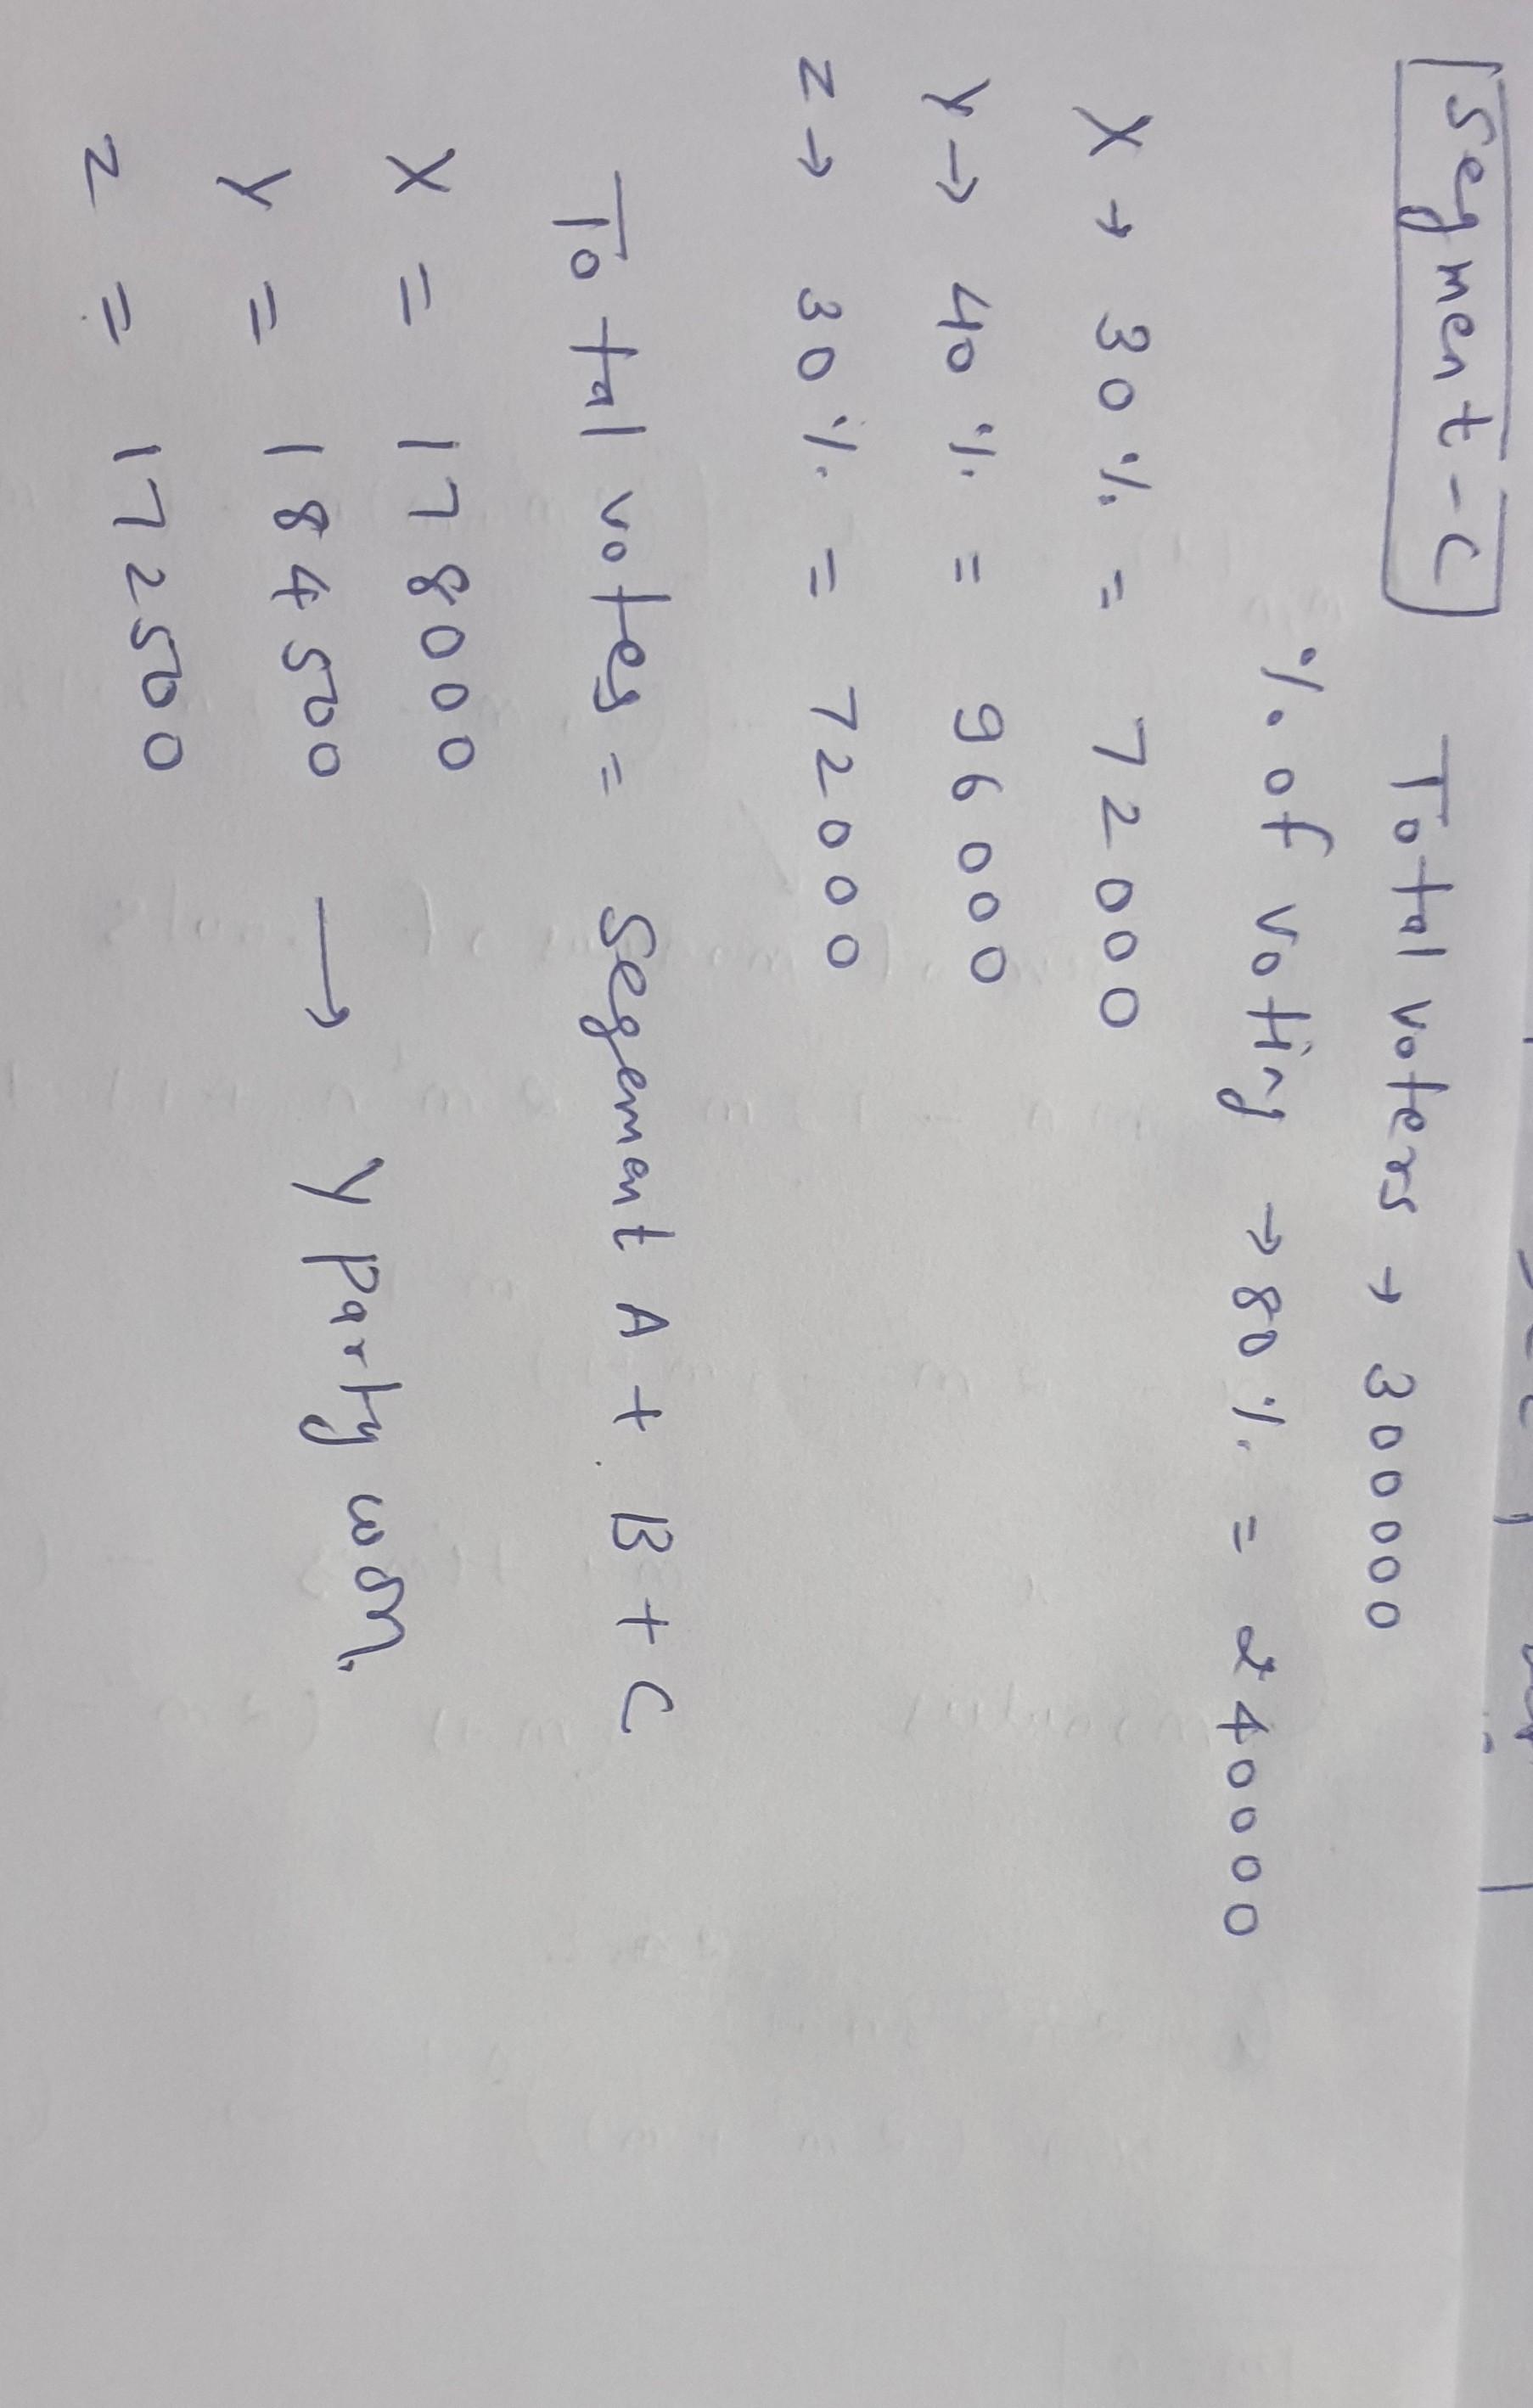 Segment-C Total voters → 300000
% of Voting → 80% = 240000
X → 30% = 72000
Y → 40% = 96000
Z → 30% = 72000
Total votes = Segement A + B + C
X = 178000
Y = 184500 → Y party won.
Z = 172500